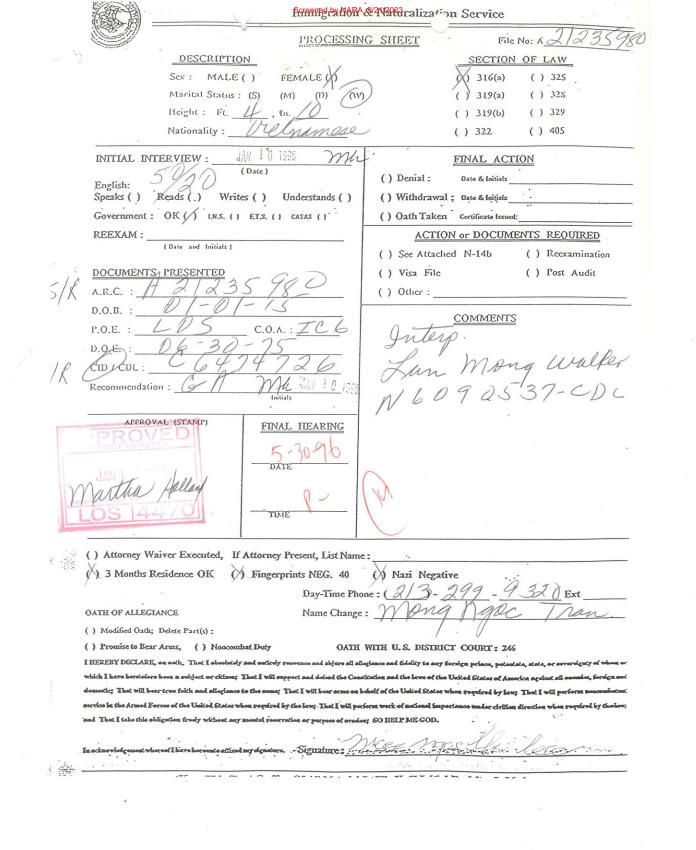 Immigration & Naturalization Service
Screened by NARA, 8/21/2023
PROCESSING SHEET
File No: A 21235980
DESCRIPTION
Sex : MALE ( ) FEMALE (X)
Marital Status : (S) (M) (D) (W)
Height : Ft. 4, In. 10
Nationality : Vietnamese
SECTION OF LAW
(X) 316(a) ( ) 325
( ) 319(a) ( ) 328
( ) 319(b) ( ) 329
( ) 322 ( ) 405
INITIAL INTERVIEW : JAN 10 1996 Mh
( Date )
50/20
English:
Speaks ( ) Reads ( ) Writes ( ) Understands ( )
Government : OK (/) I.N.S. ( ) E.T.S. ( ) CASAS ( )
REEXAM :
( Date and Initials )
FINAL ACTION
( ) Denial : Date & Initials
( ) Withdrawal ; Date & Initials
( ) Oath Taken Certificate Issued:
ACTION or DOCUMENTS REQUIRED
( ) See Attached N-14b ( ) Reexamination
( ) Visa File ( ) Post Audit
( ) Other :
DOCUMENTS PRESENTED
S/R A.R.C. : A 21235980
D.O.B. : 01-01-15
P.O.E. : LOS C.O.A. : IC6
D.O.E. : 06-30-75
/R CID / CDL : C6474726
Recommendation : GA Mh JAN 10 1996
Initials
COMMENTS
Interp.
Lan Mong Walker
N6092537-CDL
APPROVAL (STAMP)
APPROVED
JAN
Martha
LOS 4470
FINAL HEARING
5-30-96
DATE
P-
TIME
M
( ) Attorney Waiver Executed, If Attorney Present, List Name :
(X) 3 Months Residence OK (X) Fingerprints NEG. 40 (X) Nazi Negative
Day-Time Phone : (213-299-9320 Ext
OATH OF ALLEGIANCE
Name Change : Mong Ngoc Tran
( ) Modified Oath; Delete Part(s) :
( ) Promise to Bear Arms, ( ) Noncombat Duty OATH WITH U.S. DISTRICT COURT : 246
I HEREBY DECLARE, on oath, That I absolutely and entirely renounce and abjure all allegiance and fidelity to any foreign prince, potentate, state, or sovereignty of whom or
which I have heretofore been a subject or citizen; That I will support and defend the Constitution and the laws of the United States of America against all enemies, foreign and
domestic; That will bear true faith and allegiance to the same; That I will bear arms on behalf of the United States when required by law; That I will perform noncombatant
service in the Armed Forces of the United States when required by the law; That I will perform work of national importance under civilian direction when required by the law;
and That I take this obligation freely without any mental reservation or purpose of evasion; SO HELP ME GOD.
In acknowledgement whereof I have hereunto affixed my signature. Signature :